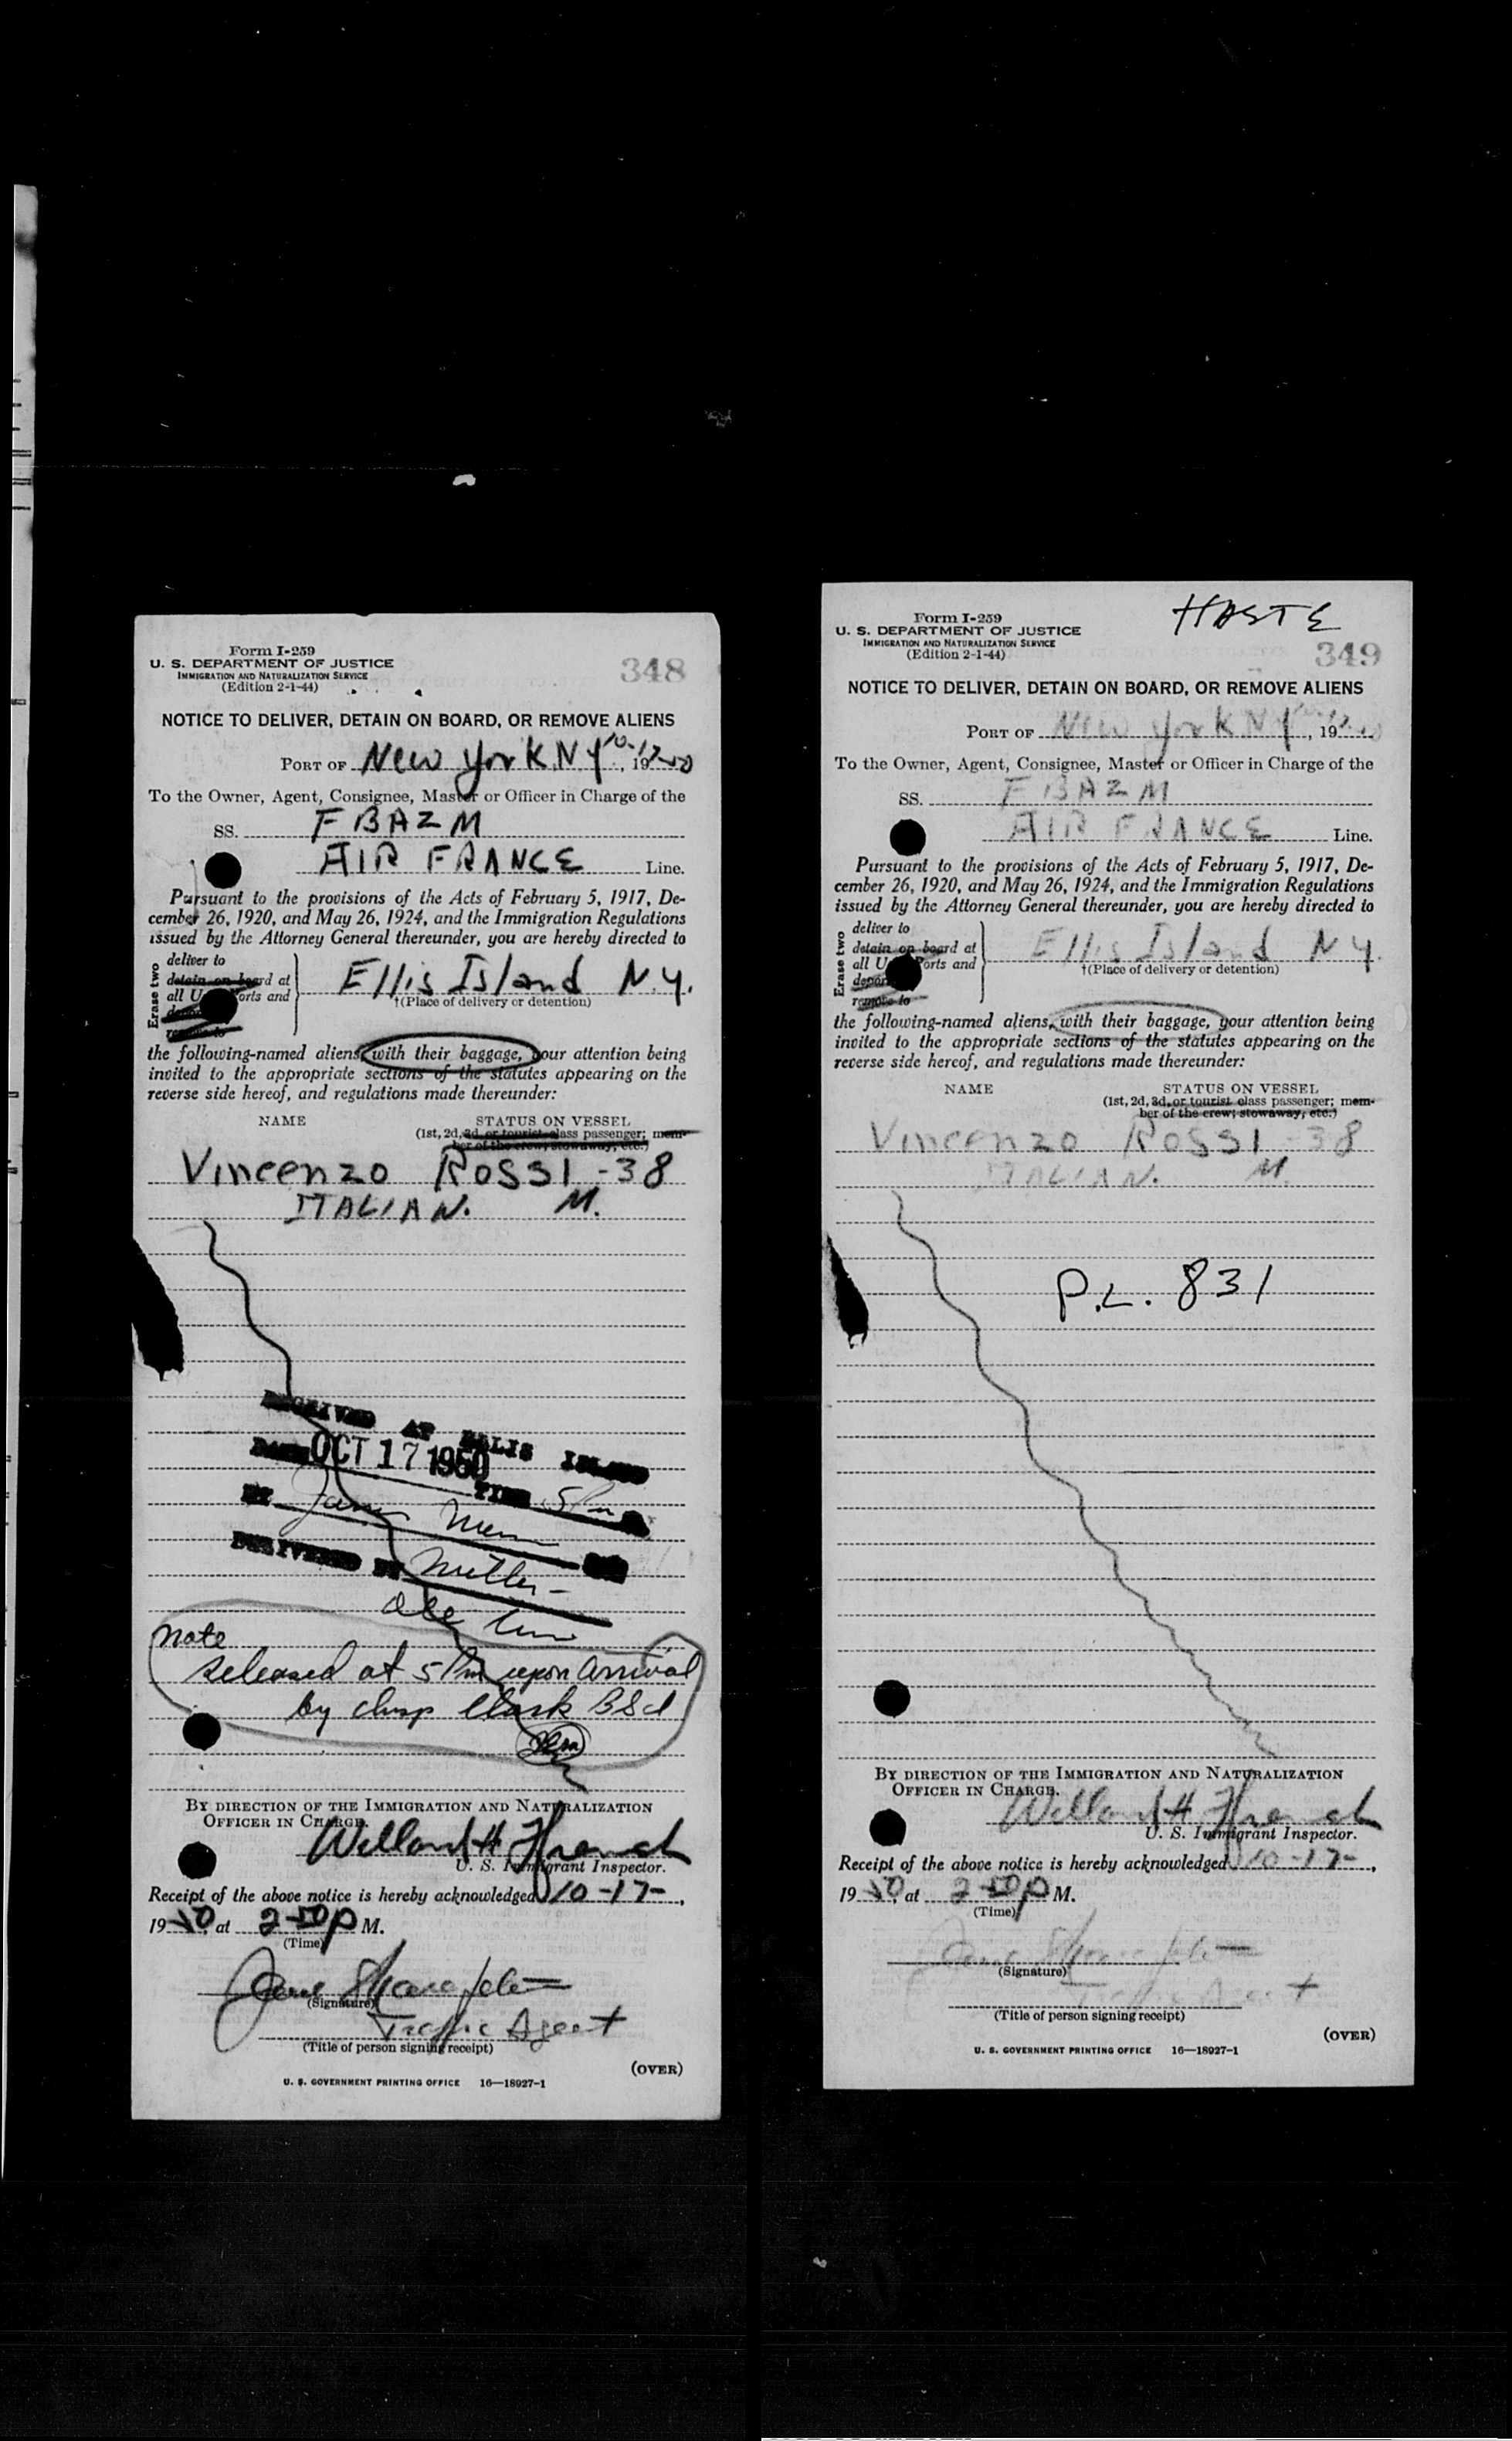 Form I-259
U. S. DEPARTMENT OF JUSTICE
IMMIGRATION AND NATURALIZATION SERVICE
(Edition 2-1-44)
348
NOTICE TO DELIVER, DETAIN ON BOARD, OR REMOVE ALIENS
PORT OF New York N.Y. 10-17, 1950
To the Owner, Agent, Consignee, Master or Officer in Charge of the
SS. F BAZM
AIR FRANCE Line.
Pursuant to the provisions of the Acts of February 5, 1917, De-
cember 26, 1920, and May 26, 1924, and the Immigration Regulations
issued by the Attorney General thereunder, you are hereby directed to
Erase two
deliver to
detain on board at
all U. S. ports and
remove to
Ellis Island N.Y.
†(Place of delivery or detention)
the following-named aliens, with their baggage, your attention being
invited to the appropriate sections of the statutes appearing on the
reverse side hereof, and regulations made thereunder:
NAME STATUS ON VESSEL
(1st, 2d, 3d, or tourist class passenger; mem-
ber of the crew; stowaway, etc.)
Vincenzo ROSSI - 38
ITALIAN. M.
RECEIVED AT ELLIS ISLAND
DATE OCT 17 1950 TIME 5 Pm
BY
DELIVERED BY Miller -
note
released at 5 Pm upon arrival
by Insp Clark BSI
BY DIRECTION OF THE IMMIGRATION AND NATURALIZATION
OFFICER IN CHARGE.
Willard H French
U. S. Immigrant Inspector.
Receipt of the above notice is hereby acknowledged 10-17-,
1950, at 2 50 P M.
(Time)
(Signature)
Traffic Agent
(Title of person signing receipt)
(OVER)
U. S. GOVERNMENT PRINTING OFFICE 16—18927-1
HASTE
Form I-259
U. S. DEPARTMENT OF JUSTICE
IMMIGRATION AND NATURALIZATION SERVICE
(Edition 2-1-44)
349
NOTICE TO DELIVER, DETAIN ON BOARD, OR REMOVE ALIENS
PORT OF New York N.Y. 10-17, 1950
To the Owner, Agent, Consignee, Master or Officer in Charge of the
SS. F BAZM
AIR FRANCE Line.
Pursuant to the provisions of the Acts of February 5, 1917, De-
cember 26, 1920, and May 26, 1924, and the Immigration Regulations
issued by the Attorney General thereunder, you are hereby directed to
Erase two
deliver to
detain on board at
all U. S. ports and
remove to
Ellis Island N.Y.
†(Place of delivery or detention)
the following-named aliens, with their baggage, your attention being
invited to the appropriate sections of the statutes appearing on the
reverse side hereof, and regulations made thereunder:
NAME STATUS ON VESSEL
(1st, 2d, 3d, or tourist class passenger; mem-
ber of the crew; stowaway, etc.)
Vincenzo ROSSI - 38
ITALIAN. M.
P.L. 831
BY DIRECTION OF THE IMMIGRATION AND NATURALIZATION
OFFICER IN CHARGE.
Willard H French
U. S. Immigrant Inspector.
Receipt of the above notice is hereby acknowledged 10-17-,
1950, at 2 50 P M.
(Time)
(Signature)
Traffic Agent
(Title of person signing receipt)
(OVER)
U. S. GOVERNMENT PRINTING OFFICE 16—18927-1